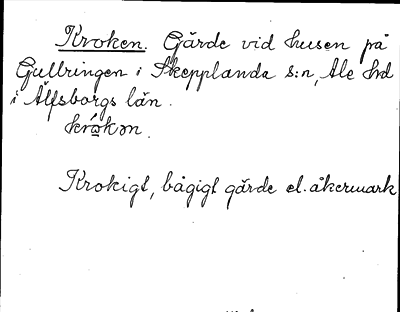 Kroken. Gärde vid husen på
Gullringen i Skepplanda s:n, Ale hd
i Älfsborgs län.
krókən.
Krokigt, bågigt gärde el. åkermark